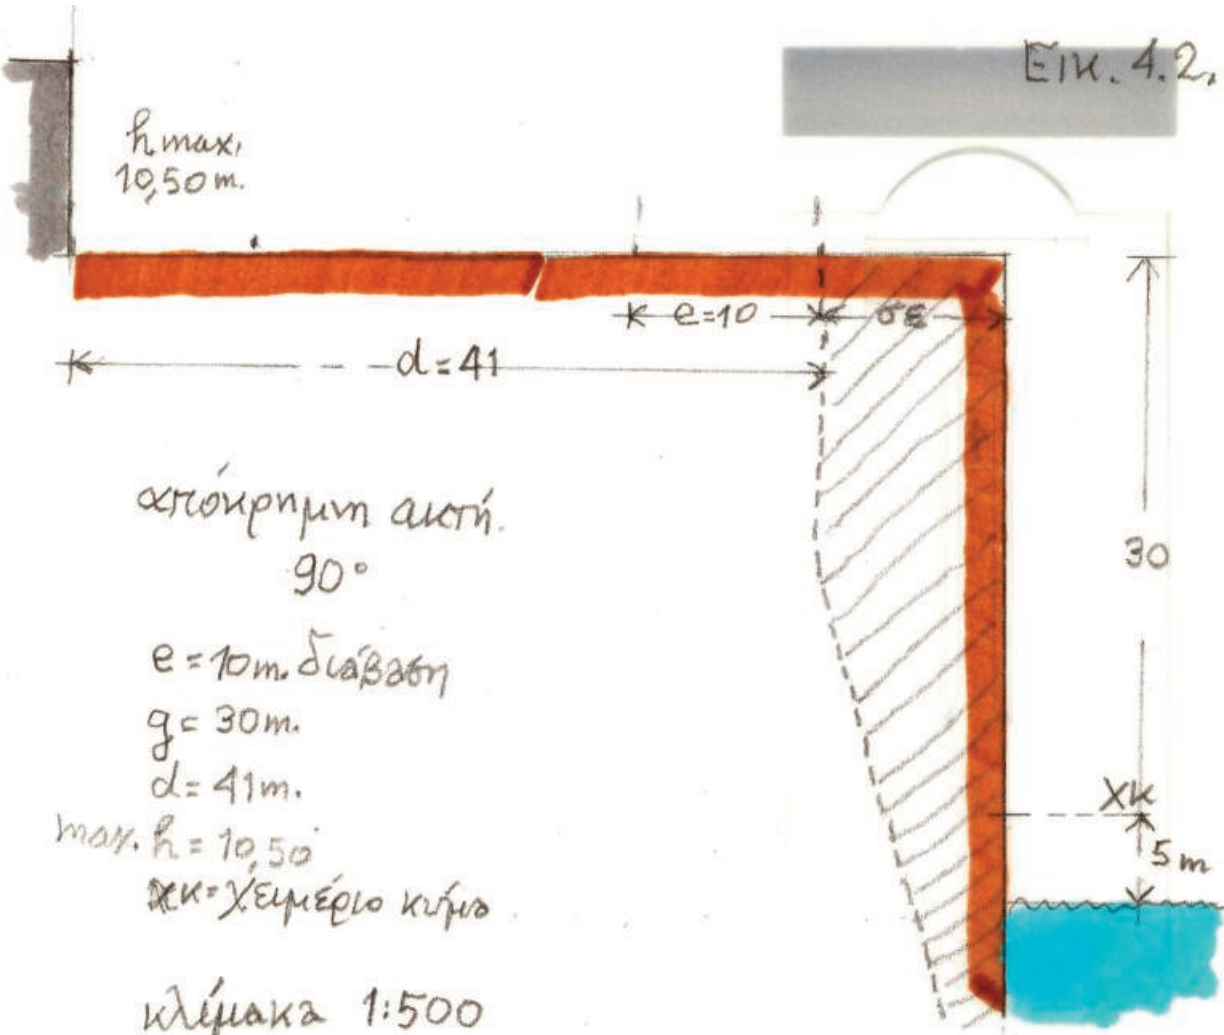 Εικ. 4.2.
h max,
10,50 m.
e=10
σε
d=41
απόκρημνη ακτή.
90°
30
e=10m. διάβαση
g= 30m.
d= 41m.
max. h = 10,50
χκ= χειμέριο κύμα
χκ
5 m
κλίμακα 1:500